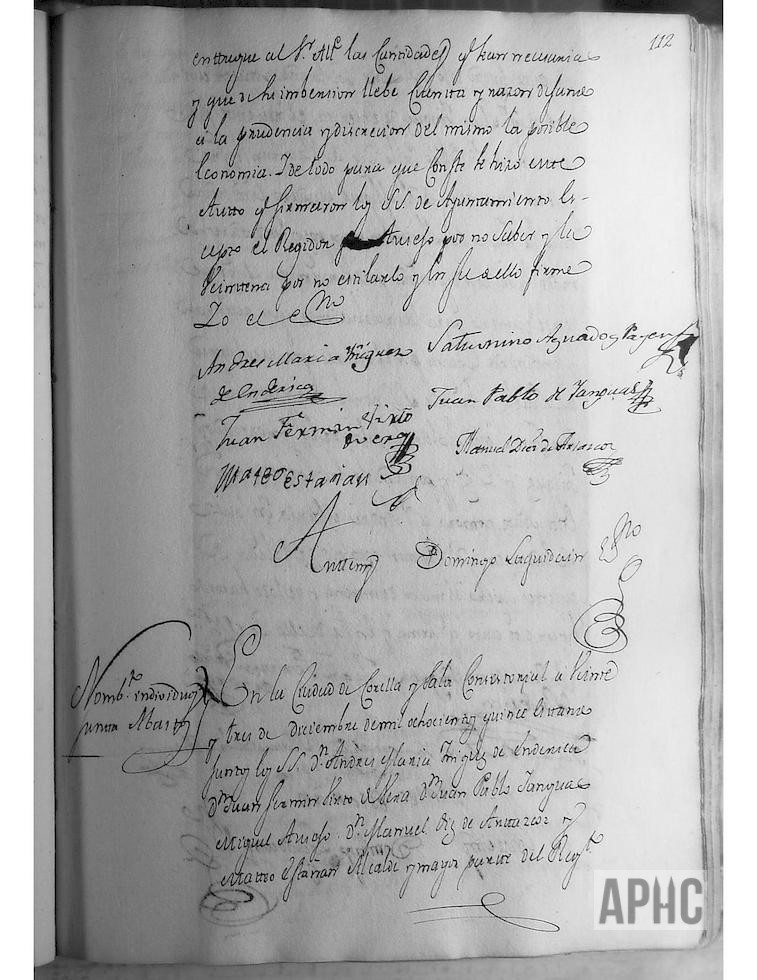 112
entregue al Sr. Alle. las Cantidades q.e sean necesarias
y que de su imbersion llebe Cuenta y razon
a la prudencia y discrecion del mismo la posible
Economia. I de todo para que Conste se hizo este
Autto q.e firmaron los SS. de Ayuntamiento es-
cepto el Regidor Ariejo por no Saber y la
Veintena por no estilarlo y en fee de ello firme
Yo el Esno
Andres Maria Yñiguez Saturnino Aguado y
de Enderica
Juan Pablo de Yanguas
Juan Fermin Virto
de vera
Manuel Diez de
Mateo Estañan
Antemi Domingo Laquidain Esno
Nomb.to individuos
junta Abasto
En la Ciudad de Corella y Sala Consistorial a Veinte
y tres de Diciembre de mil ochocientos y quince estando
juntos los SS. Dn. Andres Maria Iñiguez de Enderica
Dn. Juan Fermin Virto de Vera Dn. Juan Pablo Yanguas
Miguel Ariejo Dn. Manuel Diez de y
Matteo Estañan Alcalde y mayor parte del Regto.
APHC